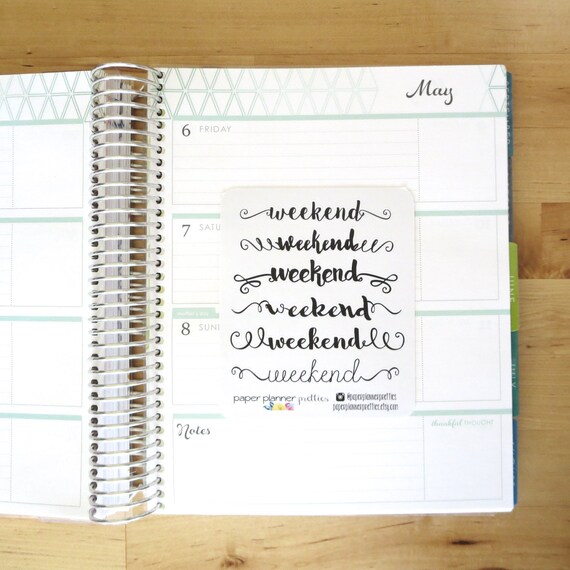 May
6 FRIDAY
7 SATU
8 SUN
weekend
weekend
weekend
weekend
weekend
weekend
paper planner pretties
@paperplannerpretties
paperplannerpretties.etsy.com
Notes
thankful THOUGHT
JUNE
JULY